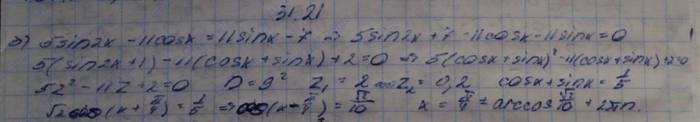 31.21
б) 5sin2x - 11cosx = 11sinx - 7 ⇒ 5sin2x + 7 - 11cosx - 11sinx = 0
5(sin2x + 1) - 11(cosx + sinx) + 2 = 0 ⇒ 5(cosx + sinx)² - 11(cosx + sinx) + 2 = 0
5z² - 11z + 2 = 0 D = 9² z₁ = 2 z₂ = 0,2 cosx + sinx = 1/5
√2 cos(x + π/4) = 1/5 ⇒ cos(x - π/4) = √2/10 x = π/4 ± arccos √2/10 + 2πn.